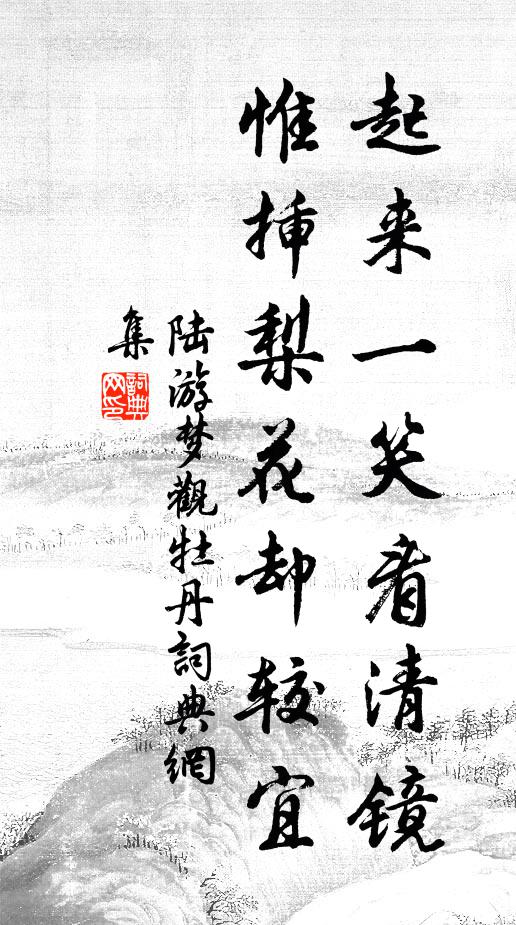 起来一笑看清镜
惟插梨花却较宜
陆游梦觀牡丹詞典網
集
詞典網印